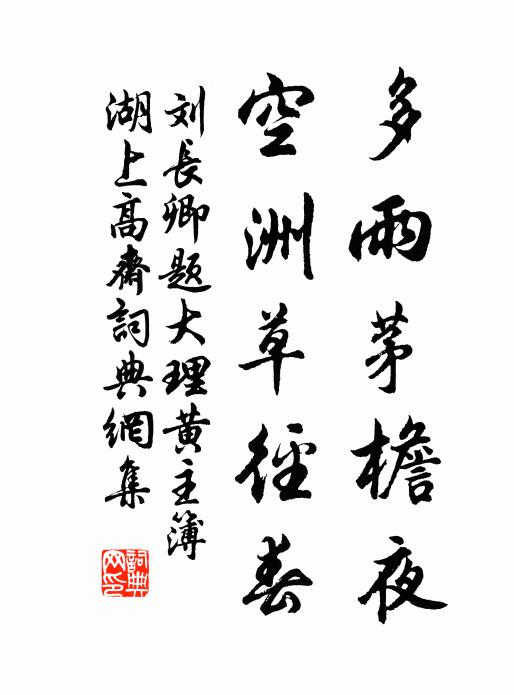 多雨茅檐夜
空洲草径春
刘長卿题大理黄主簿
湖上高齋詞典網集
詞典
网印